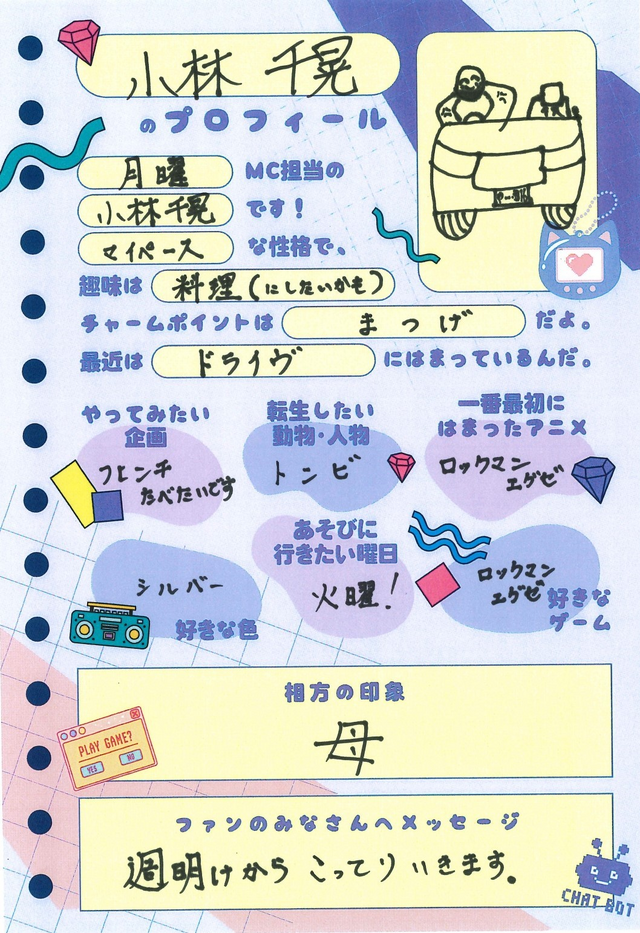 小林 千晃
のプロフィール
月曜 MC担当の
小林千晃 です!
マイペース な性格で、
趣味は 料理(にしたいかも)
チャームポイントは まつげ だよ。
最近は ドライヴ にはまっているんだ。
やってみたい
企画
フレンチ
たべたいです
転生したい
動物・人物
トンビ
一番最初に
はまったアニメ
ロックマン
エグゼ
シルバー
好きな色
あそびに
行きたい曜日
火曜!
ロックマン
エグゼ
好きな
ゲーム
相方の印象
母
PLAY GAME?
YES NO
ファンのみなさんへメッセージ
週明けから こってりいきます。
CHAT BOT